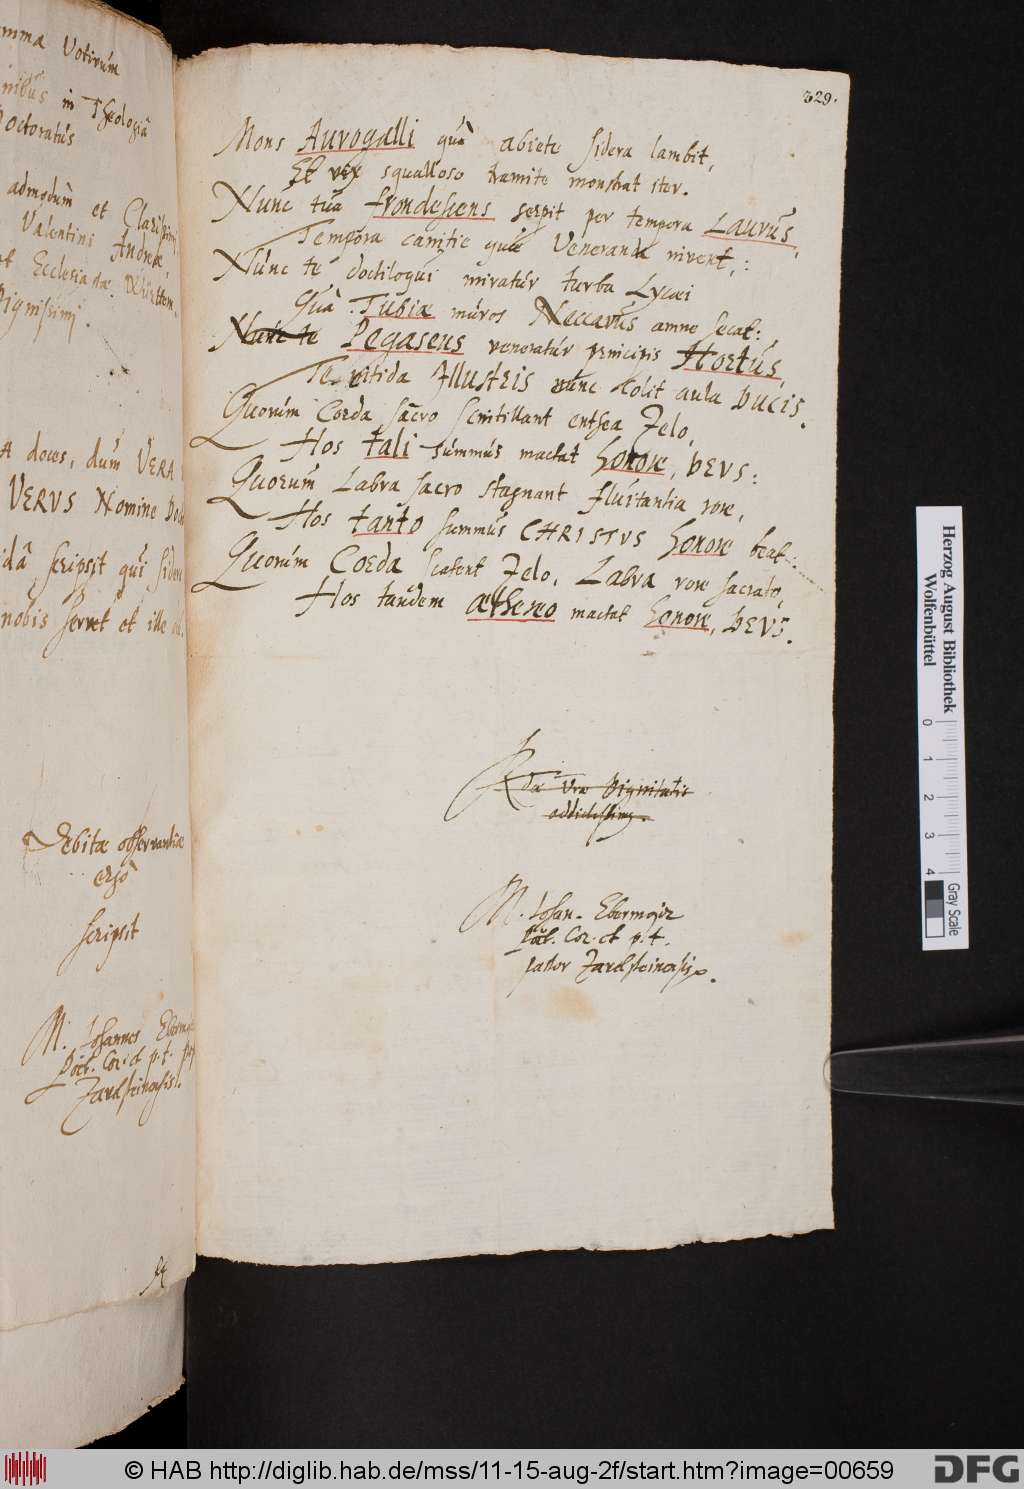 mma Votivum
nibus in Theologiâ
Doctoratus
admodùm et Clarissim
Valentini Andreæ,
et Ecclesiastæ. Württen.
Dignissimi.
A doces, dum VERA
VERUS Nomine Doc
idâ scripsit qui sidera
nobis servet et ille
Debitæ observantiæ
ergò
scripsit
M. Johannes Eberma
Poët. Cor. et p. t. p
Zavelsteinensis.
329.
Mons Aurogalli quà abiete sidera lambit,
Et vix squalloso tramite monstrat iter.
Nunc tua frondescens serpit per tempora Laurus,
Tempora canitie quæ Veneranda nivent,:
Nunc te doctiloqui miratur turba Lycæi
Quà Tubiæ muros Neccarus amne secat:
Nunc te Pegaseus veneratur principis Hortus,
Te nitida Illustris nunc colit aula Ducis.
Quorum Corda sacro scintillant enthea Zelo,
Hos tali summus mactat honore, DEUS:
Quorum Labra sacro stagnant fluitantia rore,
Hos tanto summus CHRISTUS honore beat:
Quorum Corda scatent Zelo, Labra rore sacrato,
Hos tandem æthereo mactat honore, DEUS.
Rdæ Vræ Dignitatis
addictissimus.
M. Johan. Ebermajer
Poët. Cor. et p. t.
pastor Zavelsteinensis.
Herzog August Bibliothek
Wolfenbüttel
0 1 2 3 4
Gray Scale
© HAB http://diglib.hab.de/mss/11-15-aug-2f/start.htm?image=00659
DFG